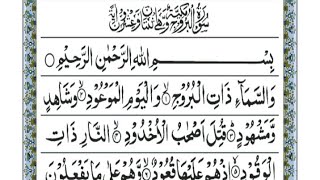 سُوْرَةُ الْبُرُوْجِ مَكِّيَّةٌ وَّهِيَ اثْنَتَانِ وَعِشْرُوْنَ اٰيَةً
بِسْمِ اللهِ الرَّحْمٰنِ الرَّحِيْمِ
وَالسَّمَآءِ ذَاتِ الْبُرُوْجِ ۙ وَالْيَوْمِ الْمَوْعُوْدِ ۙ وَشَاهِدٍ
وَّمَشْهُوْدٍ ؕ قُتِلَ اَصْحٰبُ الْاُخْدُوْدِ ۙ النَّارِ ذَاتِ
الْوَقُوْدِ ۙ اِذْ هُمْ عَلَيْهَا قُعُوْدٌ ۙ وَّهُمْ عَلٰى مَا يَفْعَلُوْنَ